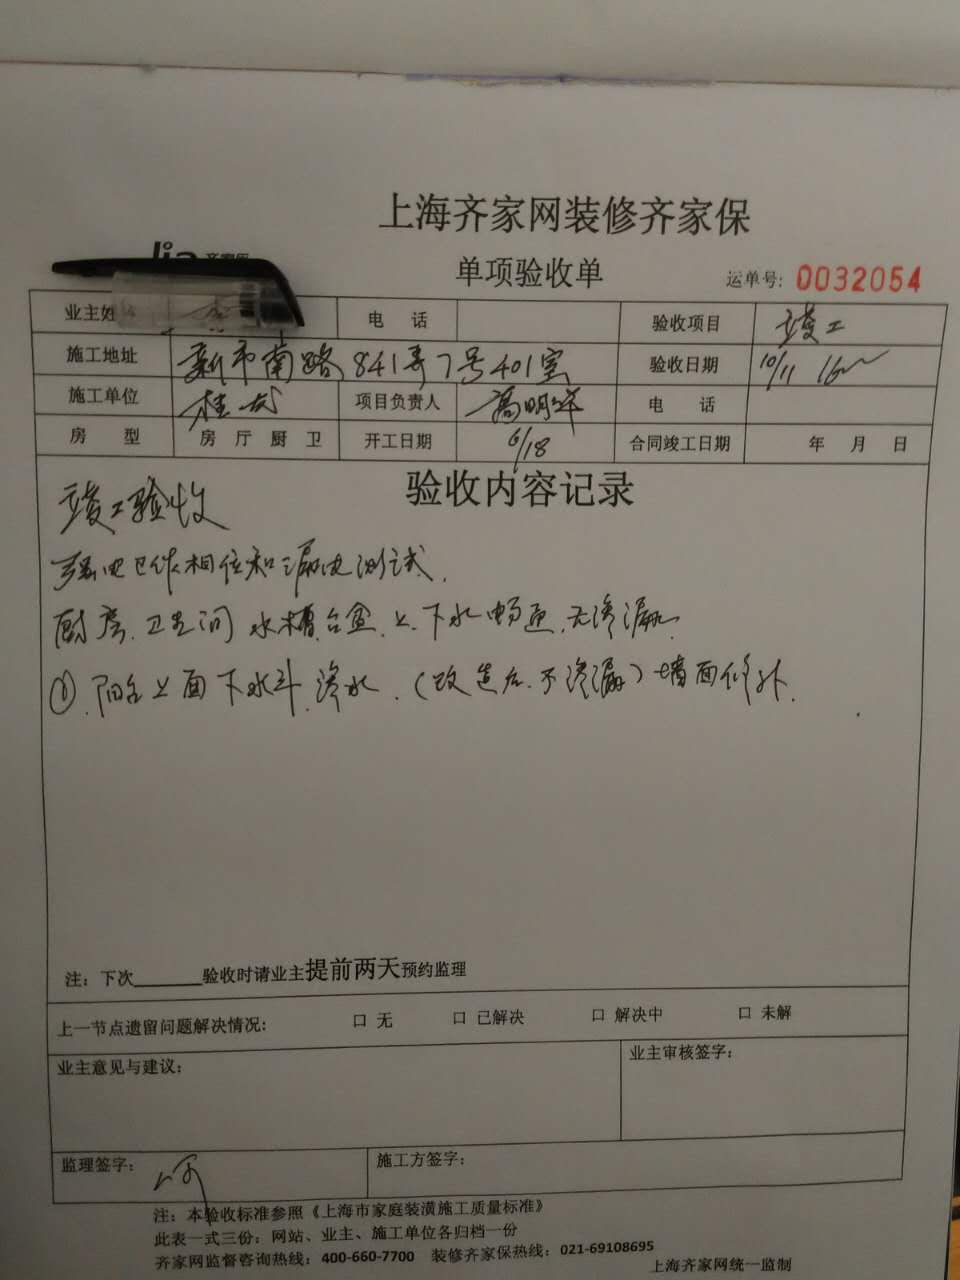 上海齐家网装修齐家保
单项验收单
运单号: 0032054
业主姓 电 话 验收项目 竣工
施工地址 新市南路841弄7号401室 验收日期 10/11
施工单位 桂 项目负责人 高明祥 电 话
房 型 房 厅 厨 卫 开工日期 6/18 合同竣工日期 年 月 日
验收内容记录
竣工验收
强电已作相位和漏电测试.
厨房.卫生间 水槽.台盆.上.下水畅通.无渗漏.
①.阳台上面下水斗.渗水.(改造后.不渗漏)墙面修补.
注：下次______验收时请业主提前两天预约监理
上一节点遗留问题解决情况: 口 无 口 已解决 口 解决中 口 未解
业主意见与建议: 业主审核签字:
监理签字: 施工方签字:
注：本验收标准参照《上海市家庭装潢施工质量标准》
此表一式三份：网站、业主、施工单位各归档一份
齐家网监督咨询热线：400-660-7700 装修齐家保热线：021-69108695
上海齐家网统一监制